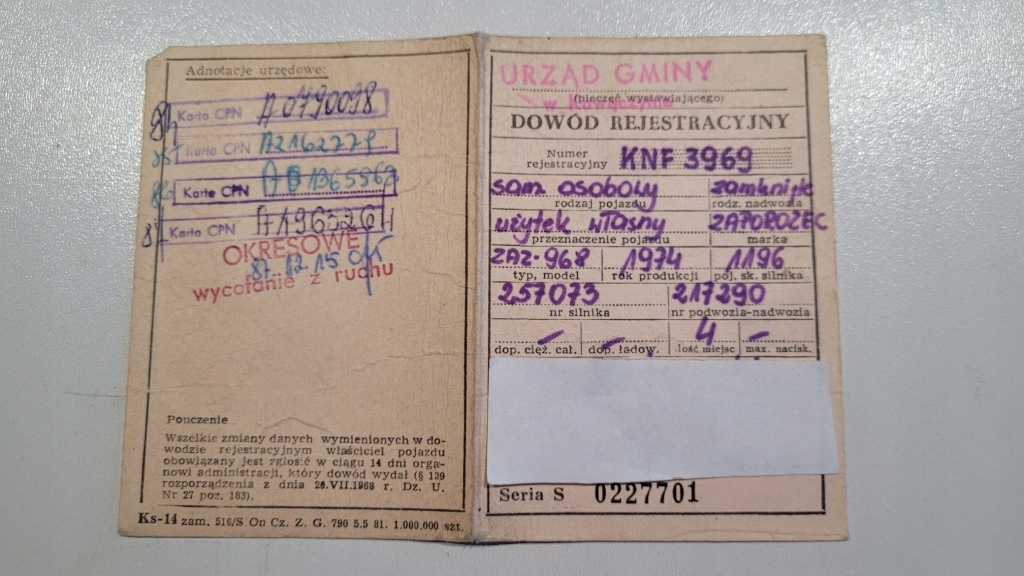 Adnotacje urzędowe:
84 Karta CPN A 0790098
85 Karta CPN A2162779
86 Karta CPN
87 Karta CPN
OKRESOWE
87.12.15
wycofanie z ruchu
Pouczenie
Wszelkie zmiany danych wymienionych w do-
wodzie rejestracyjnym właściciel pojazdu
obowiązany jest zgłosić w ciągu 14 dni orga-
nowi administracji, który dowód wydał (§ 139
rozporządzenia z dnia 20.VII.1968 r. Dz. U.
Nr 27 poz. 183).
Ks-14 zam. 516/S On Cz. Z. G. 790 5.5 81. 1.000.000 szt.
URZĄD GMINY
(pieczęć wystawiającego)
w
DOWÓD REJESTRACYJNY
Numer
rejestracyjny KNF 3969
sam. osobowy zamknięte
rodzaj pojazdu rodz. nadwozia
użytek własny ZAPOROŻEC
przeznaczenie pojazdu marka
ZAZ-968 1974 1196
typ, model rok produkcji poj. sk. silnika
257073 217290
nr silnika nr podwozia-nadwozia
– – 4 –
dop. cięż. cał. dop. ładow. ilość miejsc max. nacisk.
Seria S 0227701